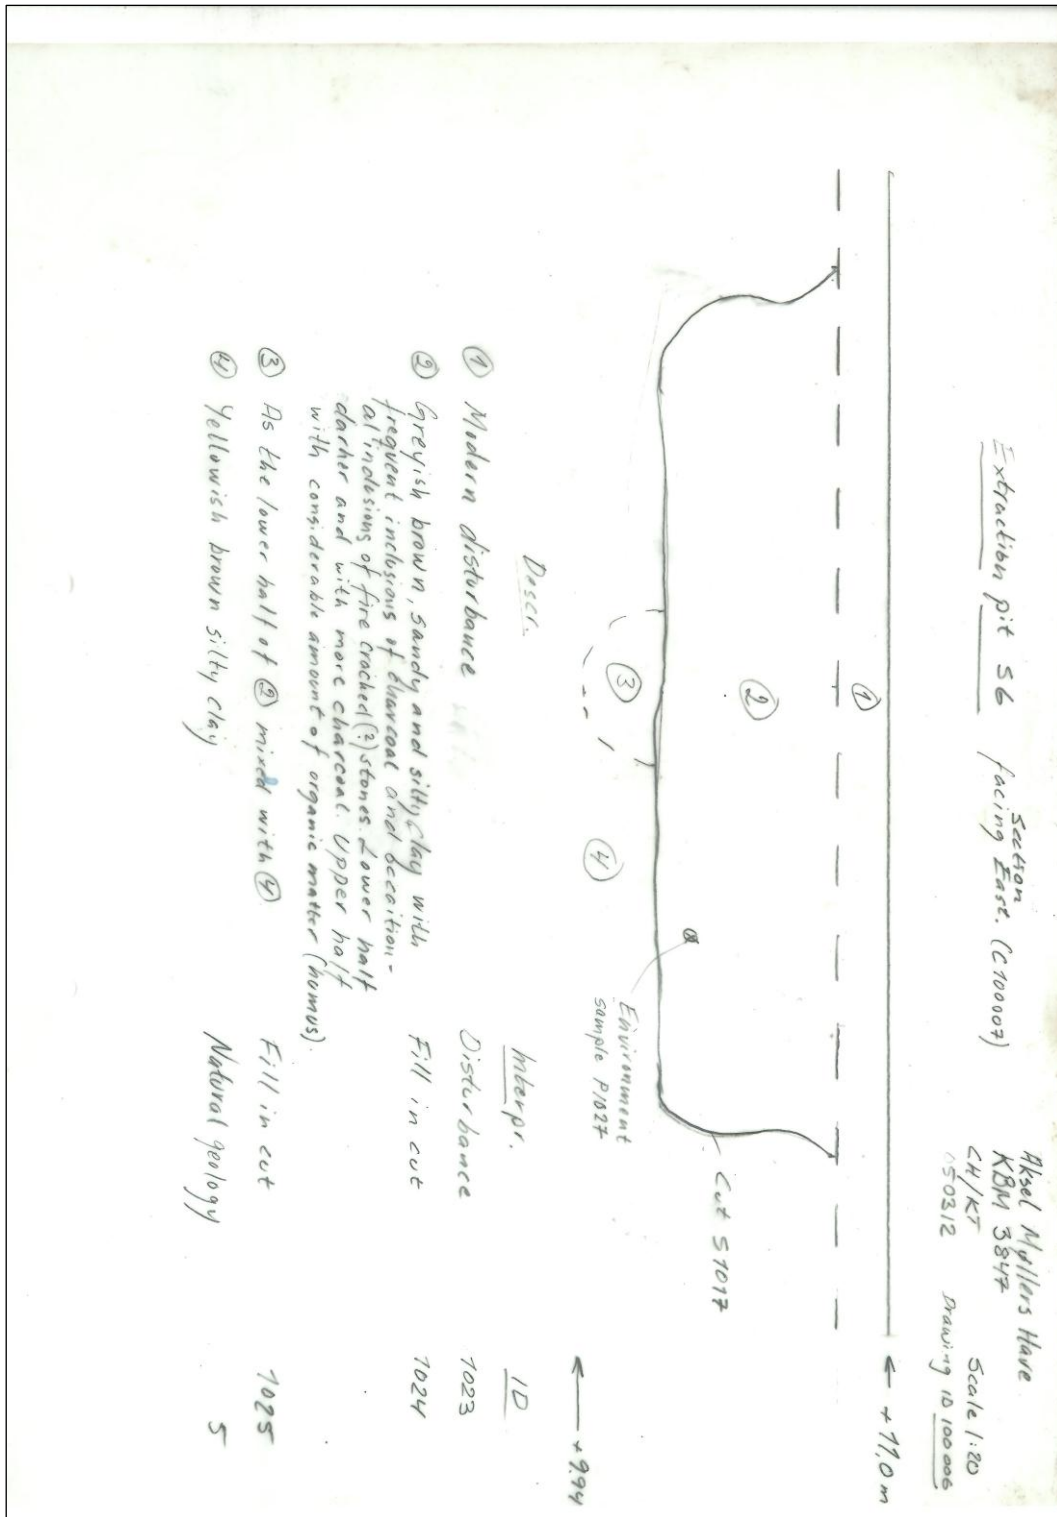 Aksel Møllers Have
KBM 3847
CH/KT Scale 1:20
050312 Drawing ID 100006
Extraction pit S6 Section facing East. (C100007)
+11,0 m
①
②
③
④
Environment
sample P1027
Cut S1017
+9.94
Descr. Interpr. ID
① Modern disturbance Disturbance 1023
② Greyish brown, sandy and silty clay with Fill in cut 1024
frequent inclusions of charcoal and occaition-
al inclusions of fire cracked(?) stones. Lower half
darker and with more charcoal. Upper half
with considerable amount of organic matter (humus).
③ As the lower half of ② mixed with ④ Fill in cut 1025
④ Yellowish brown silty clay Natural geology 5